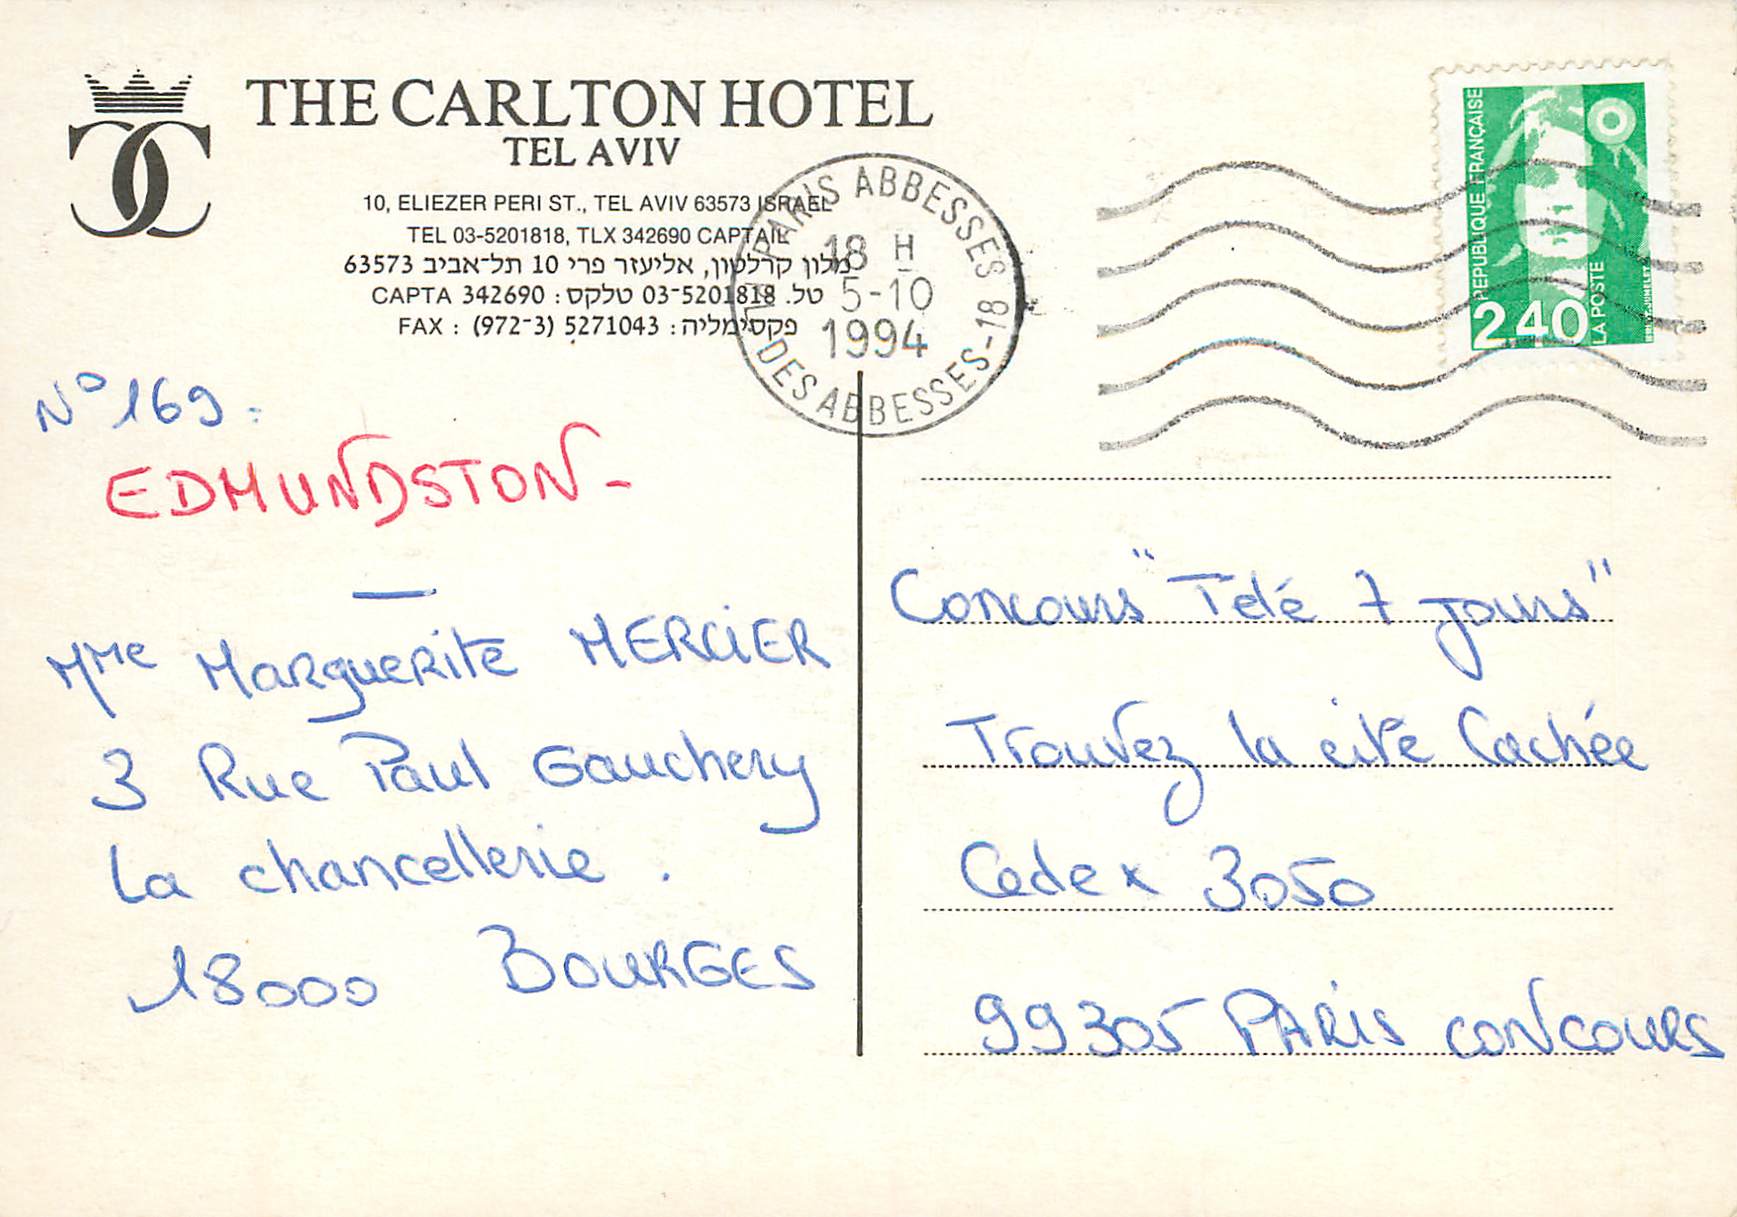 THE CARLTON HOTEL
TEL AVIV
10, ELIEZER PERI ST., TEL AVIV 63573 ISRAEL
TEL 03-5201818, TLX 342690 CAPTAIL
מלון קרלטון, אליעזר פרי 10 תל־אביב 63573
טל. 03-5201818 טלקס: CAPTA 342690
פקסימליה: FAX : (972-3) 5271043
PARIS ABBESSES
18 H
5-10
1994
DES ABBESSES-18
REPUBLIQUE FRANÇAISE
LA POSTE
2,40
N° 169:
EDMUNDSTON -
Mme Marguerite MERCIER
3 Rue Paul Gauchery
La chancellerie.
18000 BOURGES
Concours "Télé 7 Jours"
Trouvez la cité Cachée
Cedex 3050
99305 PARIS CONCOURS